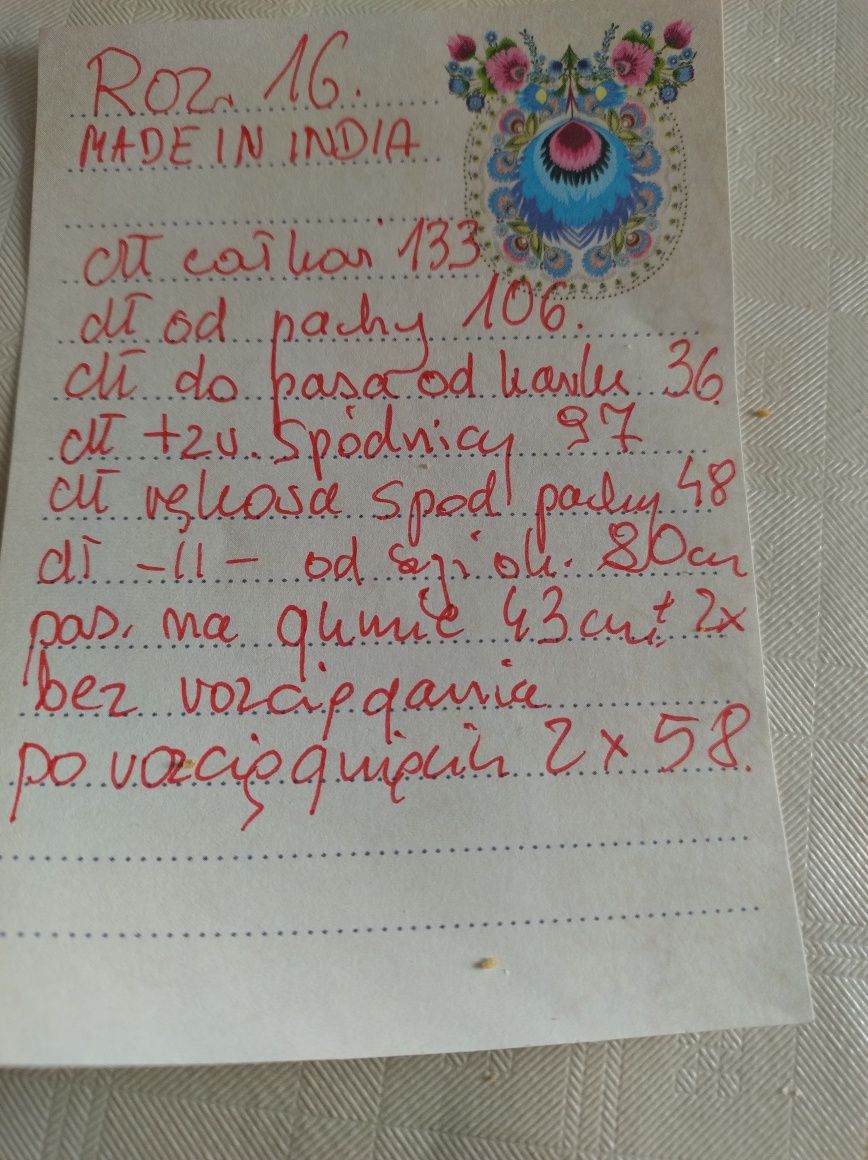 Roz. 16.
MADE IN INDIA
dł całkow 133
dł od pachy 106.
dł do pasa od karku 36
dł tzw. spódnicy 97
dł rękawa spod pachy 48
dł -||- od szyi ok. 80cm
pas. na gumie 43cm 2x
bez rozciągania
po rozciągnięciu 2 x 58.